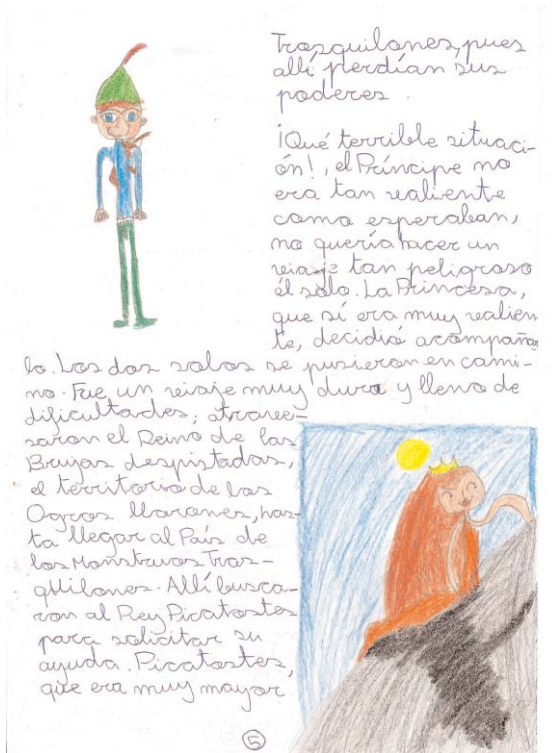 Trasquilones, pues
allí perdían sus
poderes.
¡Qué terrible situaci-
ón!, el Príncipe no
era tan valiente
como esperaban,
no quería hacer un
viaje tan peligroso
él solo. La Princesa,
que sí era muy valien
te, decidió acompaña
lo. Los dos solos se pusieron en cami-
no. Fue un viaje muy duro y lleno de
dificultades; atrave-
saron el Reino de las
Brujas despistadas,
el territorio de los
Ogros llorones, has-
ta llegar al País de
los Monstruos Tras-
quilones. Allí busca-
ron al Rey Picatostes
para solicitar su
ayuda. Picatostes,
que era muy mayor
5